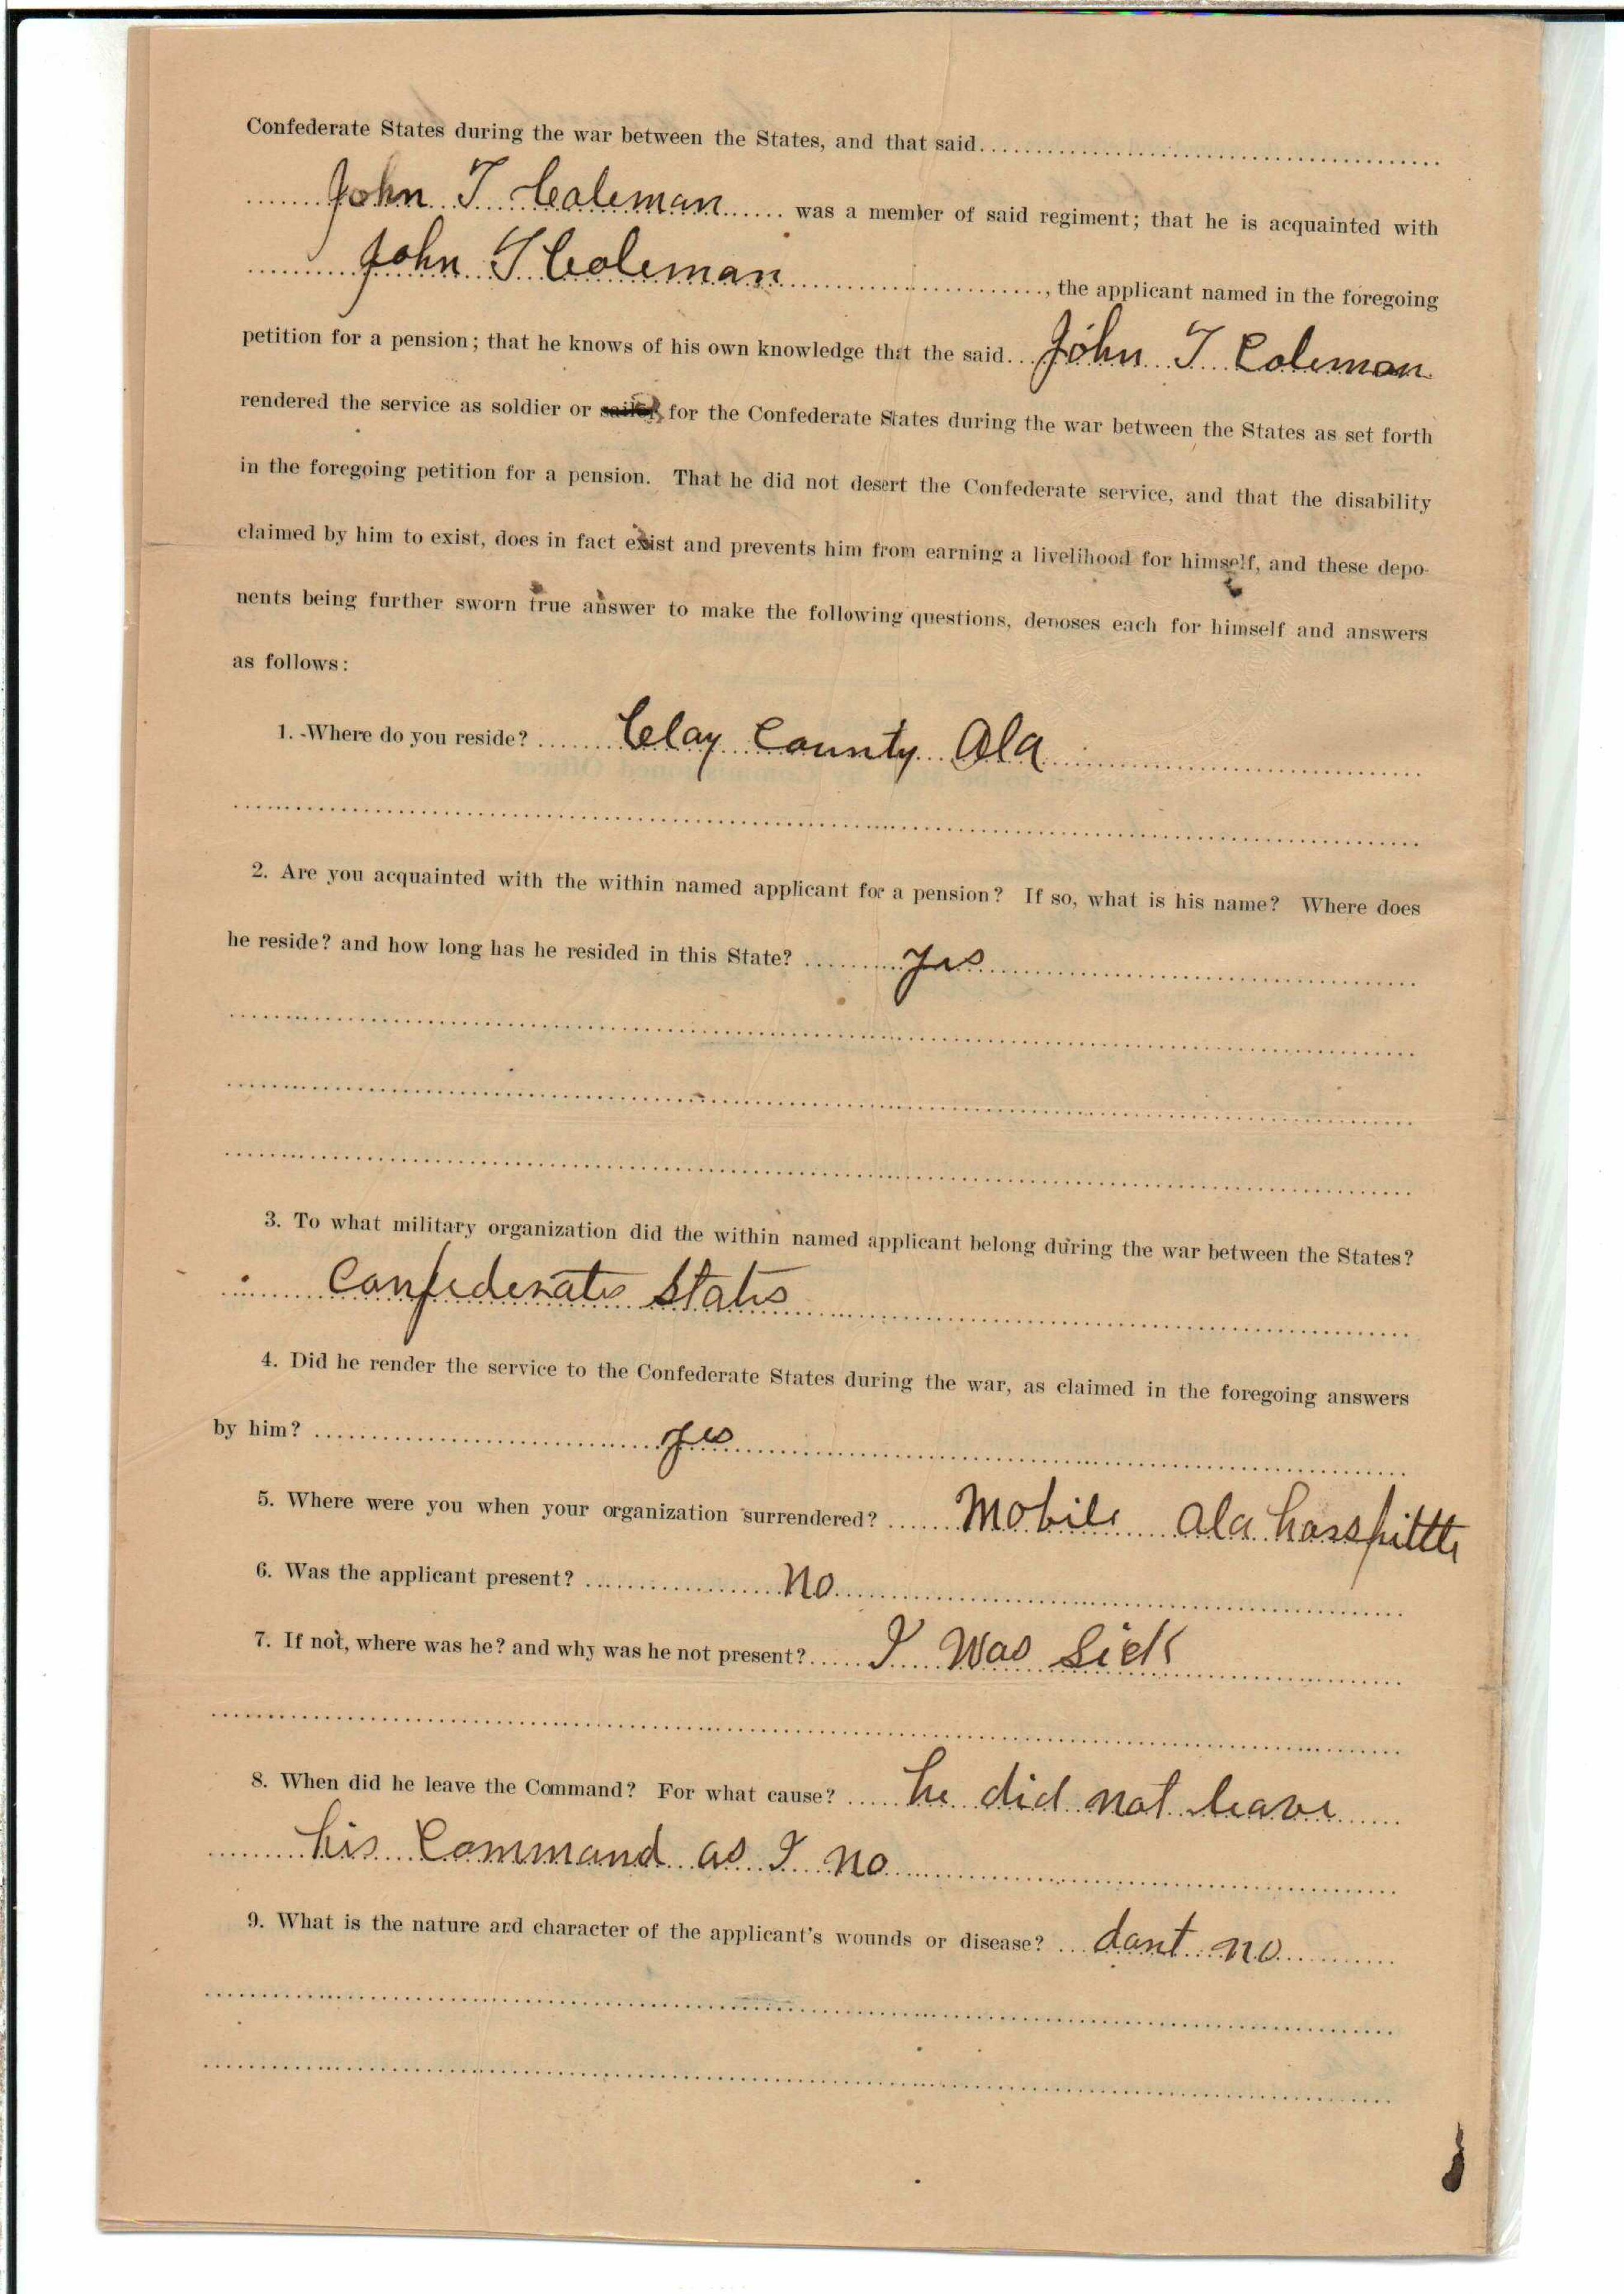 Confederate States during the war between the States, and that said
John T Coleman was a member of said regiment; that he is acquainted with
John T Coleman, the applicant named in the foregoing
petition for a pension; that he knows of his own knowledge that the said John T Coleman
rendered the service as soldier or sailor for the Confederate States during the war between the States as set forth
in the foregoing petition for a pension. That he did not desert the Confederate service, and that the disability
claimed by him to exist, does in fact exist and prevents him from earning a livelihood for himself, and these depo-
nents being further sworn true answer to make the following questions, deposes each for himself and answers
as follows:
1. Where do you reside? Clay County Ala
2. Are you acquainted with the within named applicant for a pension? If so, what is his name? Where does
he reside? and how long has he resided in this State? yes
3. To what military organization did the within named applicant belong during the war between the States?
Confederate States
4. Did he render the service to the Confederate States during the war, as claimed in the foregoing answers
by him? yes
5. Where were you when your organization surrendered? Mobile Ala hosspittle
6. Was the applicant present? no
7. If not, where was he? and why was he not present? I was Sick
8. When did he leave the Command? For what cause? he did not leave
his Command as I no
9. What is the nature and character of the applicant's wounds or disease? dont no